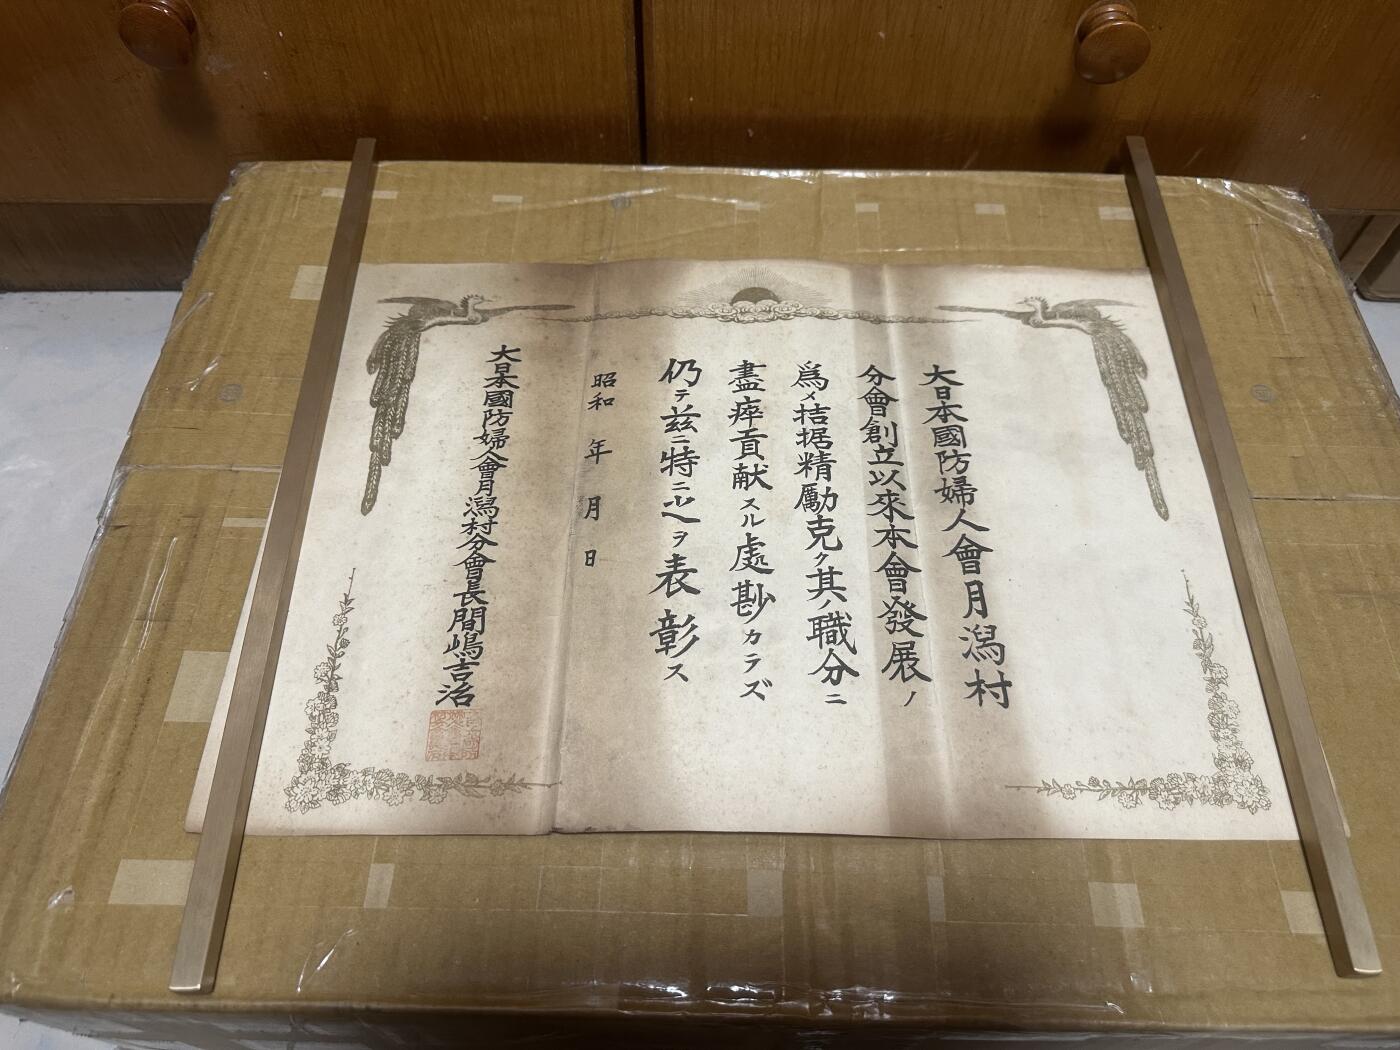 大日本國防婦人會月潟村
分會創立以來本會發展ノ
爲メ拮据精勵克ク其ノ職分ニ
盡瘁貢献スル處尠カラズ
仍テ茲ニ特ニ之ヲ表彰ス
昭和 年 月 日
大日本國防婦人會月潟村分會長間嶋吉治